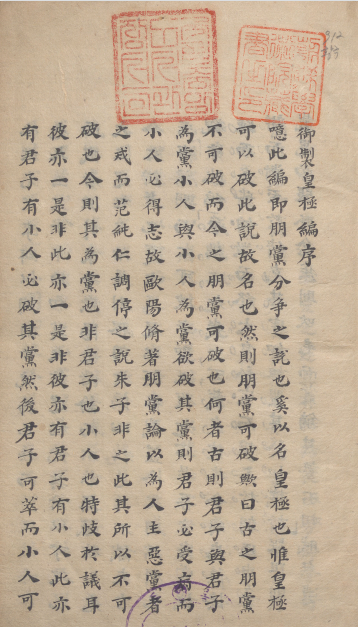 御製皇極編序
噫此編卽朋黨分爭之說也奚以名皇極也唯皇極
可以破此說故名也然則朋黨可破歟曰古之朋黨
不可破而今之朋黨可破也何者古則君子與君子
為黨小人與小人為黨欲破其黨則君子必受亡而
小人必得志故歐陽脩著朋黨論以為人主惡黨者
之戒而范純仁調停之說朱子非之此其所以不可
破也今則其為黨也非君子也小人也特歧於議耳
彼亦一是非此亦一是非彼亦有君子有小人此亦
有君子有小人必破其黨然後君子可萃而小人可